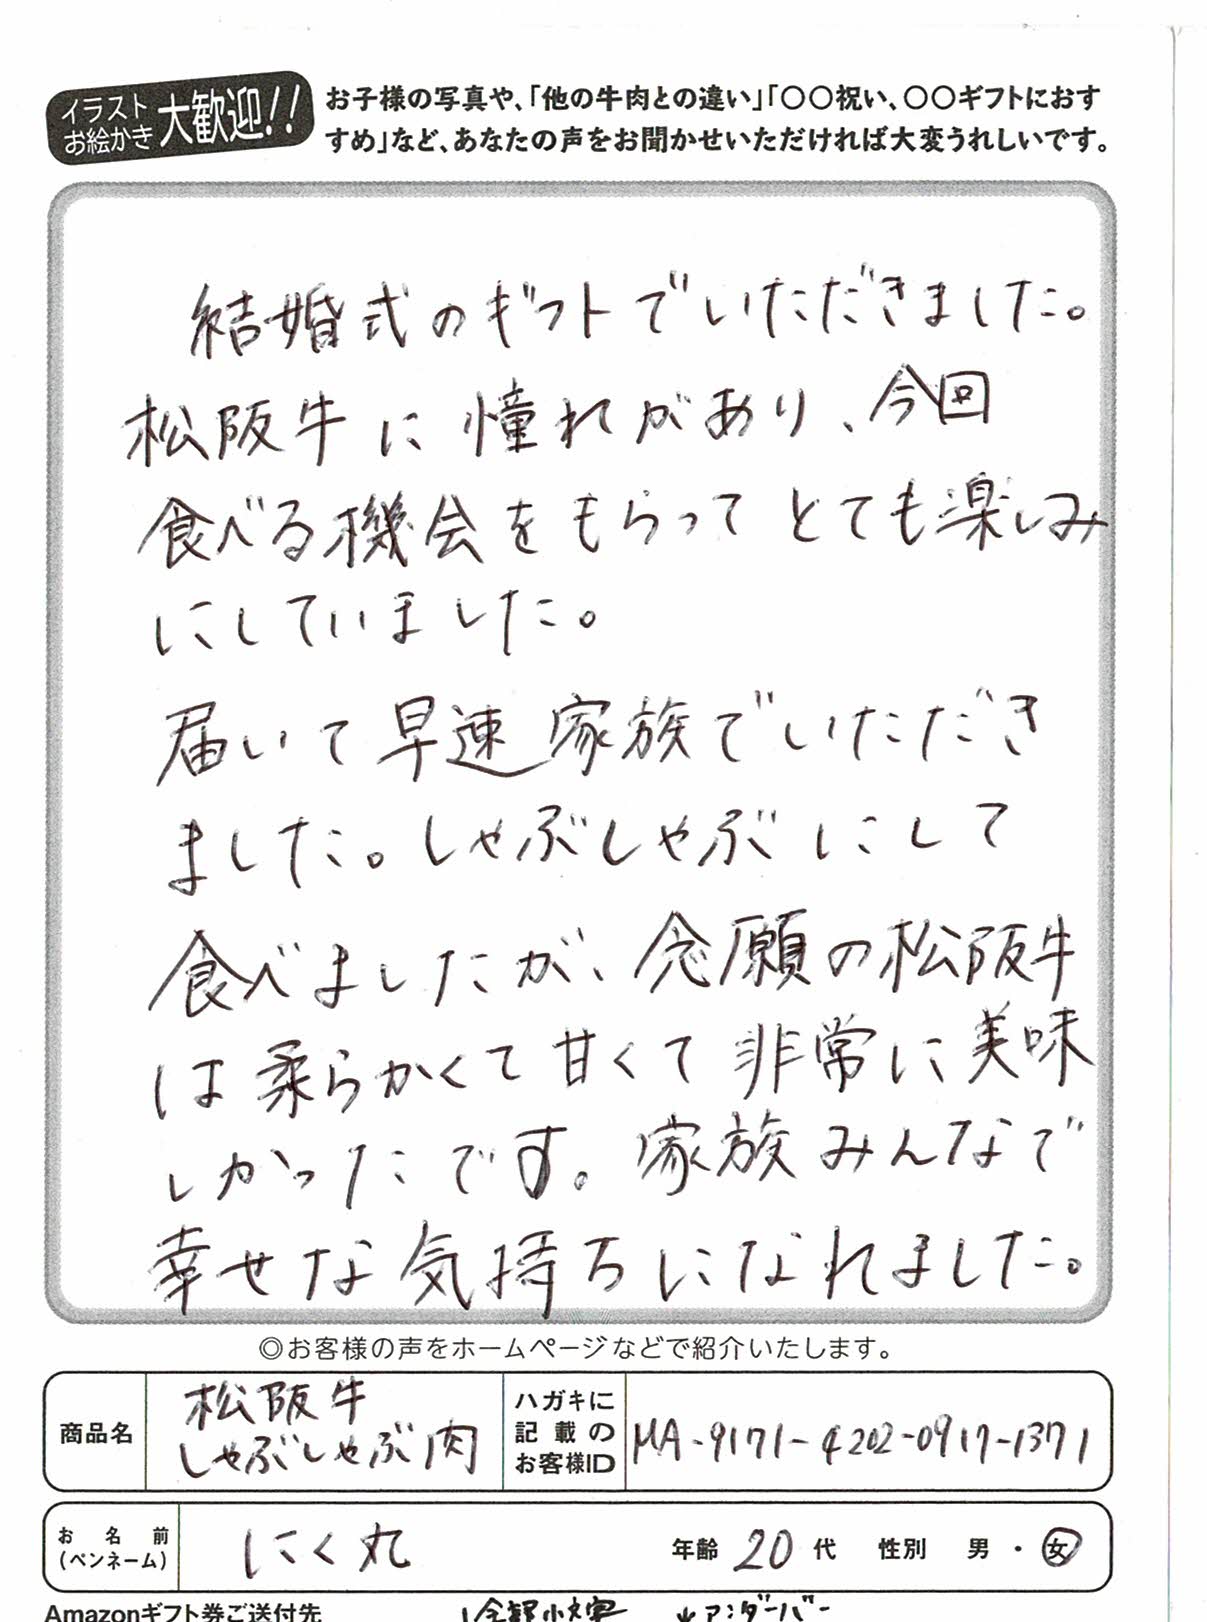 イラスト
お絵かき
大歓迎!!
お子様の写真や、「他の牛肉との違い」「〇〇祝い、〇〇ギフトにおす
すめ」など、あなたの声をお聞かせいただければ大変うれしいです。
結婚式のギフトでいただきました。
松阪牛に憧れがあり、今回
食べる機会をもらってとても楽しみ
にしていました。
届いて早速家族でいただき
ました。しゃぶしゃぶにして
食べましたが、念願の松阪牛
は柔らかくて甘くて非常に美味
しかったです。家族みんなで
幸せな気持ちになれました。
◎お客様の声をホームページなどで紹介いたします。
商品名
松阪牛
しゃぶしゃぶ肉
ハガキに
記載の
お客様ID
MA-9171-4202-0917-1371
お名前
(ペンネーム)
にく丸
年齢 20 代 性別 男・女
Amazonギフト券ご送付先
アンダーバー